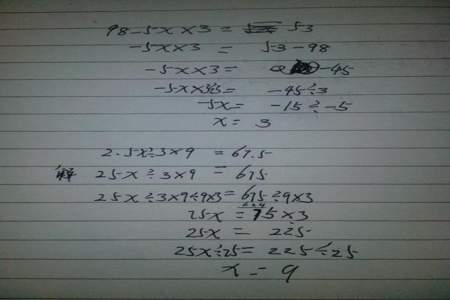 98-5x×3= 53
-5x×3 = 53-98
-5x×3= -45
-5x×3÷3= -45÷3
-5x= -15÷-5
x= 3
2.5x÷3×9 =67.5
解 25x÷3×9 = 675
25x÷3×9÷9×3= 675÷9×3
25x = 75×3
25x = 225
25x÷25= 225÷25
x = 9